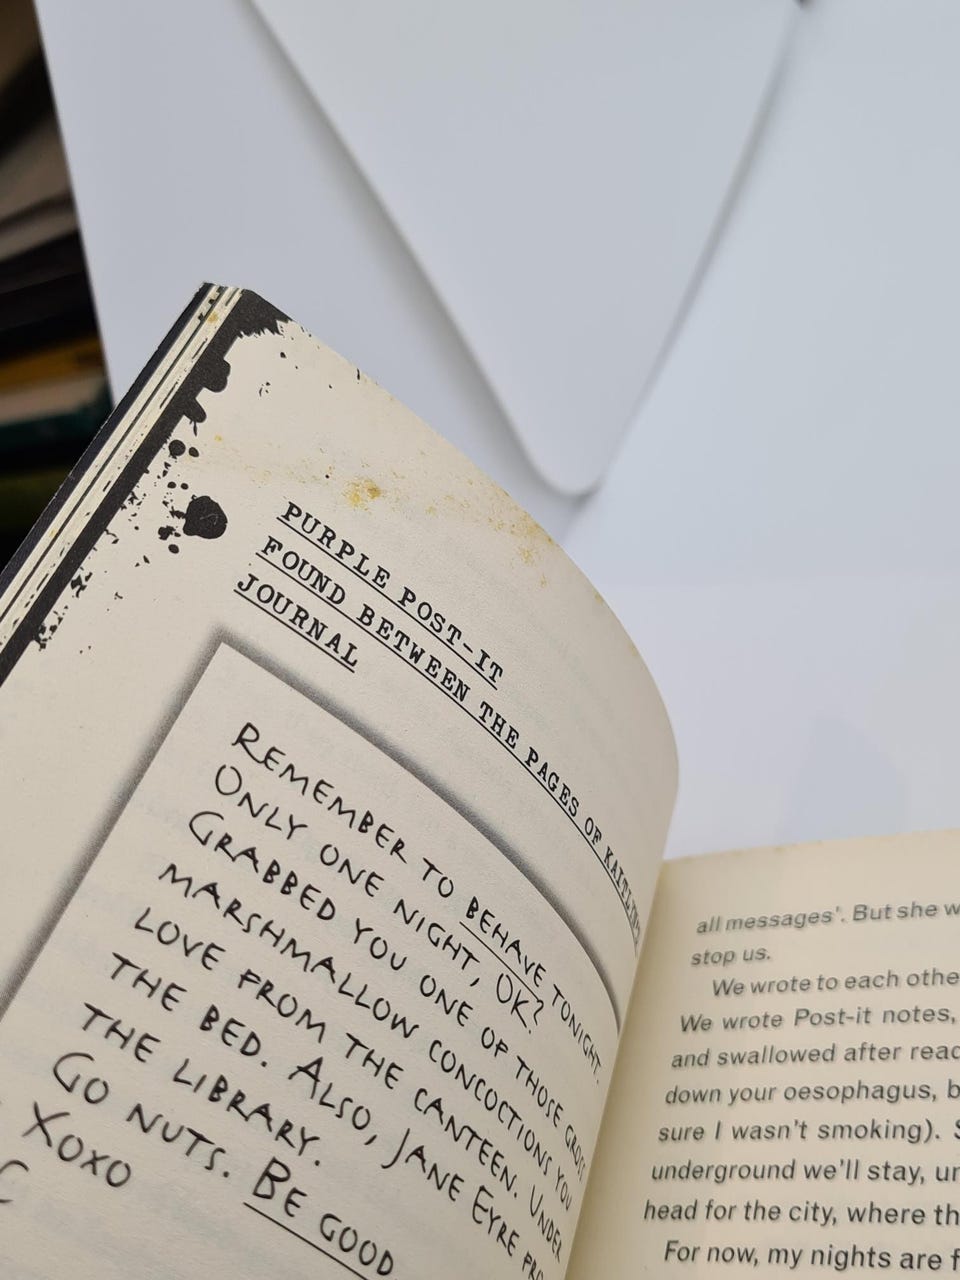 PURPLE POST-IT
FOUND BETWEEN THE PAGES OF KAITLYN'S
JOURNAL
REMEMBER TO BEHAVE TONIGHT.
ONLY ONE NIGHT, OK?
GRABBED YOU ONE OF THOSE GROSS
MARSHMALLOW CONCOCTIONS YOU
LOVE FROM THE CANTEEN. UNDER
THE BED. ALSO, JANE EYRE
THE LIBRARY.
GO NUTS. BE GOOD
XOXO
C
all messages'. But she
stop us.
We wrote to each
We wrote Post-it notes,
and swallowed after
down your oesophagus,
sure I wasn't smoking).
underground we'll stay,
head for the city, where
For now, my nights are